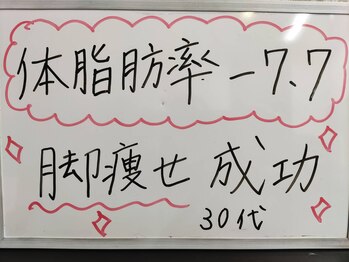 体脂肪率-7.7
脚痩せ 成功
30代